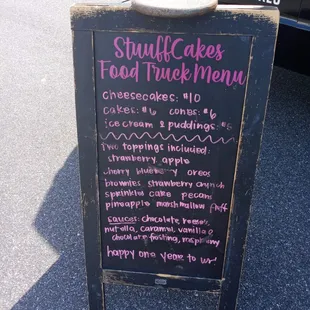 StuuffCakes
Food Truck Menu
cheesecakes: $10
cakes: $6 cones: $6
ice cream & puddings: $5
Two toppings included:
strawberry apple
cherry blueberry oreos
brownies strawberry crunch
sprinkles cake pecans
pineapple marshmallow fluff
sauces: chocolate, reese's,
nutella, caramel, vanilla &
chocolate frosting, raspberry
happy one year to us